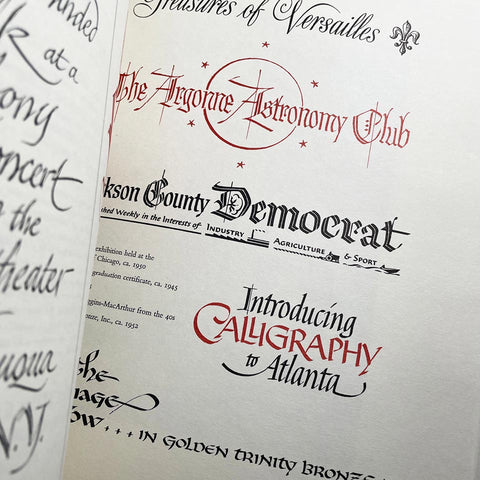 nded
at a
ony
ncert
the
theater
N.Y.
Treasures of Versailles
The Argonne Astronomy Club
kson County Democrat
shed Weekly in the Interests of INDUSTRY AGRICULTURE & SPORT
exhibition held at the
f Chicago, ca. 1950
graduation certificate, ca. 1945
s
ggins-MacArthur from the 40s
onze, Inc., ca. 1952
Introducing
CALLIGRAPHY
to Atlanta
the
mage
ow... IN GOLDEN TRINITY BRONZE